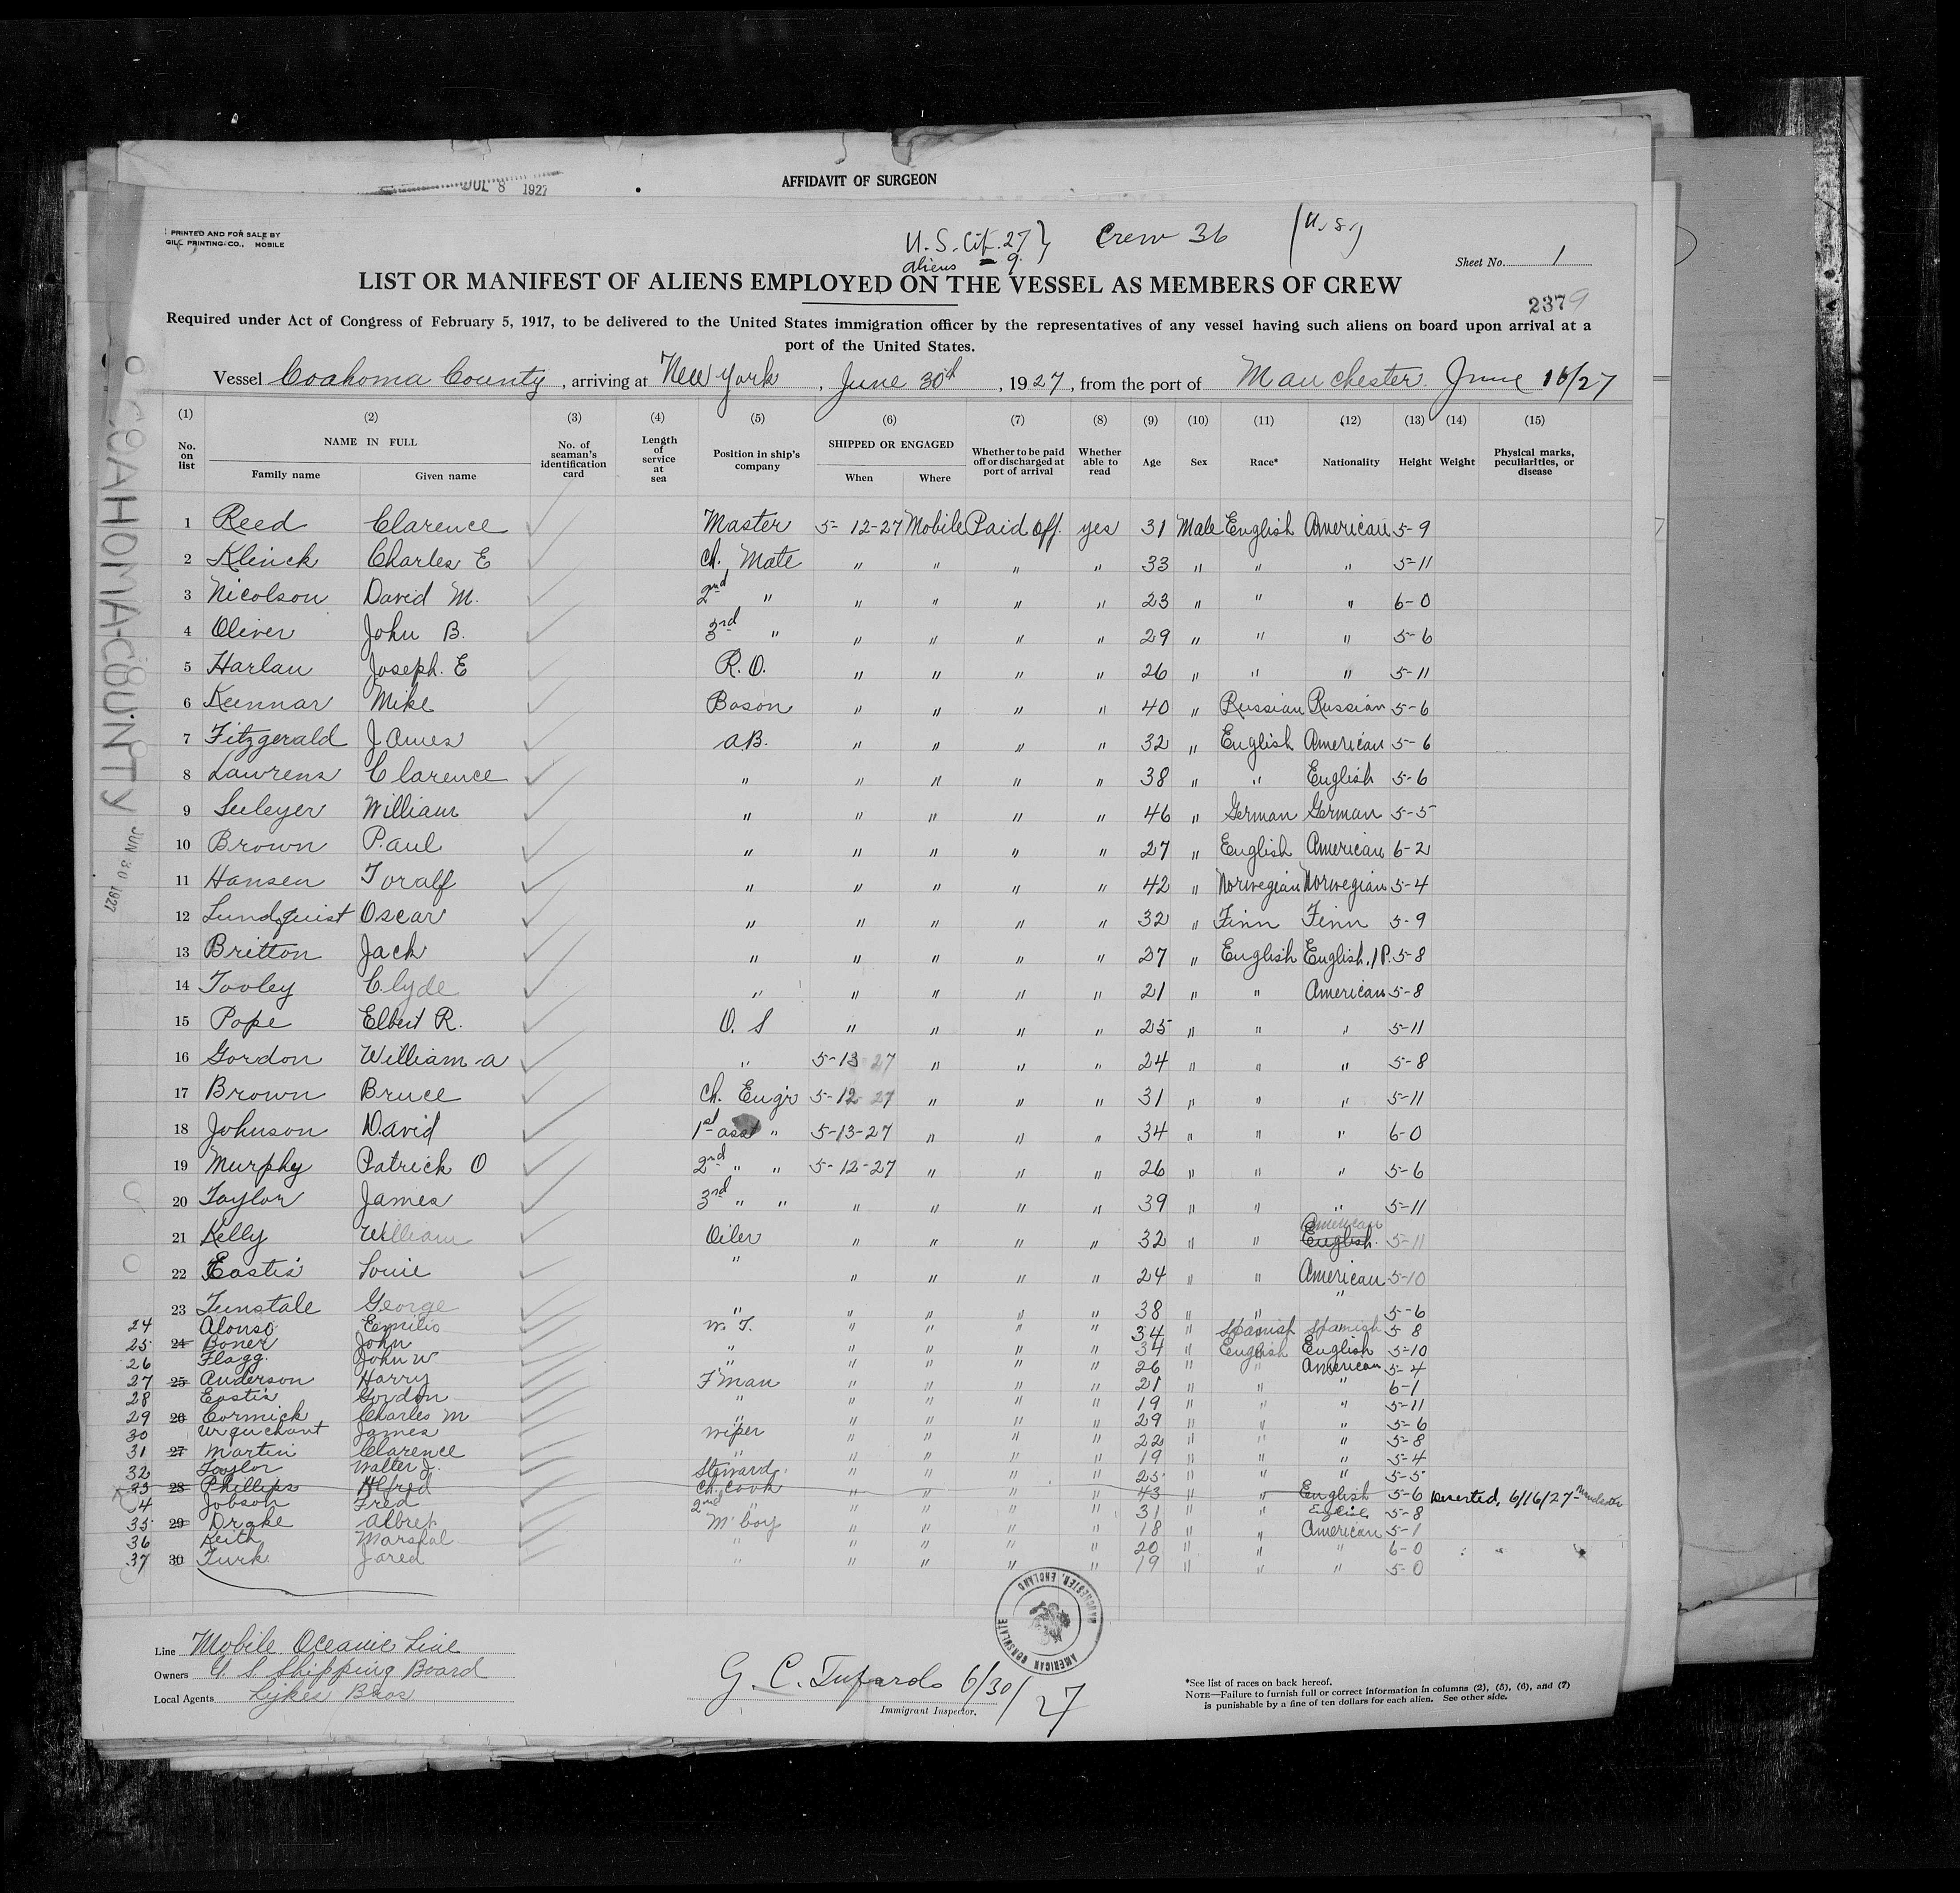 JUL 8 1927
AFFIDAVIT OF SURGEON
PRINTED AND FOR SALE BY
GILL PRINTING CO., MOBILE
U. S. Cit. 27 } Crew 36 (U.S.)
aliens = 9
Sheet No. 1
LIST OR MANIFEST OF ALIENS EMPLOYED ON THE VESSEL AS MEMBERS OF CREW
2379
Required under Act of Congress of February 5, 1917, to be delivered to the United States immigration officer by the representatives of any vessel having such aliens on board upon arrival at a
port of the United States.
Vessel Coahoma County, arriving at New York, June 30th, 1927, from the port of Manchester. June 16/27
(1) (2) (3) (4) (5) (6) (7) (8) (9) (10) (11) (12) (13) (14) (15)
No. on list NAME IN FULL Family name Given name No. of seaman's identification card Length of service at sea Position in ship's company SHIPPED OR ENGAGED When Where Whether to be paid off or discharged at port of arrival Whether able to read Age Sex Race* Nationality Height Weight Physical marks, peculiarities, or disease
1 Reed Clarence Master 5-12-27 Mobile Paid off. yes 31 Male English American 5-9
2 Klinck Charles E Ch. Mate " " " " 33 " " " 5-11
3 Nicolson David M. 2nd " " " " " 23 " " " 6-0
4 Oliver John B. 3rd " " " " " 29 " " " 5-6
5 Harlan Joseph. E R.O. " " " " 26 " " " 5-11
6 Kennar Mike Boson " " " " 40 " Russian Russian 5-6
7 Fitzgerald James A.B. " " " " 32 " English American 5-6
8 Lawrens Clarence " " " " " 38 " " English 5-6
9 Seeleyer William " " " " " 46 " German German 5-5
10 Brown Paul " " " " " 27 " English American 6-2
11 Hansen Toralf " " " " " 42 " Norwegian Norwegian 5-4
12 Lundquist Oscar " " " " " 32 " Finn Finn 5-9
13 Britton Jack " " " " " 27 " English English. 1P. 5-8
14 Tooley Clyde " " " " " 21 " " American 5-8
15 Pope Elbert R. O. S " " " " 25 " " " 5-11
16 Gordon William A " 5-13 27 " " " 24 " " " 5-8
17 Brown Bruce Ch. Engr 5-12 27 " " " 31 " " " 5-11
18 Johnson David 1st asst " 5-13-27 " " " 34 " " " 6-0
19 Murphy Patrick O 2nd " " 5-12-27 " " " 26 " " " 5-6
20 Taylor James 3rd " " " " " " 39 " " " 5-11
American
21 Kelly William Oiler " " " " 32 " " English. 5-11
22 Eastis Louie " " " " " 24 " " American 5-10
23 Tunstale George " " " " " 38 " " " 5-6
24 Alonso Emilio W. T. " " " " 34 " Spanish Spanish 5 8
25 24 Boner John " " " " " 34 " English English 5-10
26 Flagg. John W " " " " " 26 " " American 5-4
27 25 Anderson Harry F'man " " " " 21 " " " 6-1
28 Eastis Gordon " " " " " 19 " " " 5-11
29 26 Cormick Charles M " " " " " 29 " " " 5-6
30 Urquchant James wiper " " " " 22 " " " 5-8
31 27 Martin Clarence " " " " " 19 " " " 5-4
32 Taylor Walter J. Steward. " " " " 25 " " " 5-5
33 28 Phillips Alfred Ch. Cook " " " " 43 " " English 5-6 Deserted, 6/16/27 - Manchester
34 Jobson Fred 2nd " " " " " 31 " " English 5-8
35 29 Drake Albret M'boy " " " " 18 " " American 5-1
36 Keith Marshal " " " " " 20 " " " 6-0
37 30 Turk Jared " " " " " 19 " " " 5-0
COAHOMA-COUNTY JUN 30 1927
AMERICAN CONSULATE MANCHESTER, ENGLAND
Line Mobile Oceanic Line
Owners U. S. Shipping Board
Local Agents Lykes Bros
6/30/27
Immigrant Inspector.
*See list of races on back hereof.
NOTE—Failure to furnish full or correct information in columns (2), (5), (6), and (7)
is punishable by a fine of ten dollars for each alien. See other side.